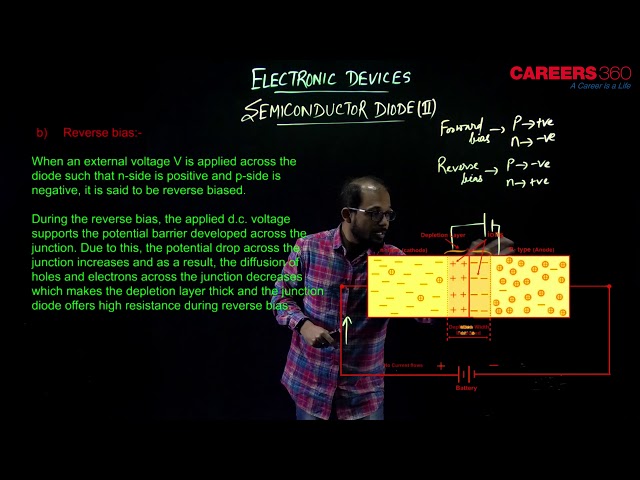 ELECTRONIC DEVICES
CAREERS360
A Career is a Life
SEMICONDUCTOR DIODE (II)
Forward bias → P → +ve
n → -ve
Reverse bias → P → -ve
n → +ve
b) Reverse bias:-
When an external voltage V is applied across the
diode such that n-side is positive and p-side is
negative, it is said to be reverse biased.
During the reverse bias, the applied d.c. voltage
supports the potential barrier developed across the
junction. Due to this, the potential drop across the
junction increases and as a result, the diffusion of
holes and electrons across the junction decreases
which makes the depletion layer thick and the junction
diode offers high resistance during reverse bias.
Depletion Layer
(cathode)
type (Anode)
Current flows
+ −
Battery